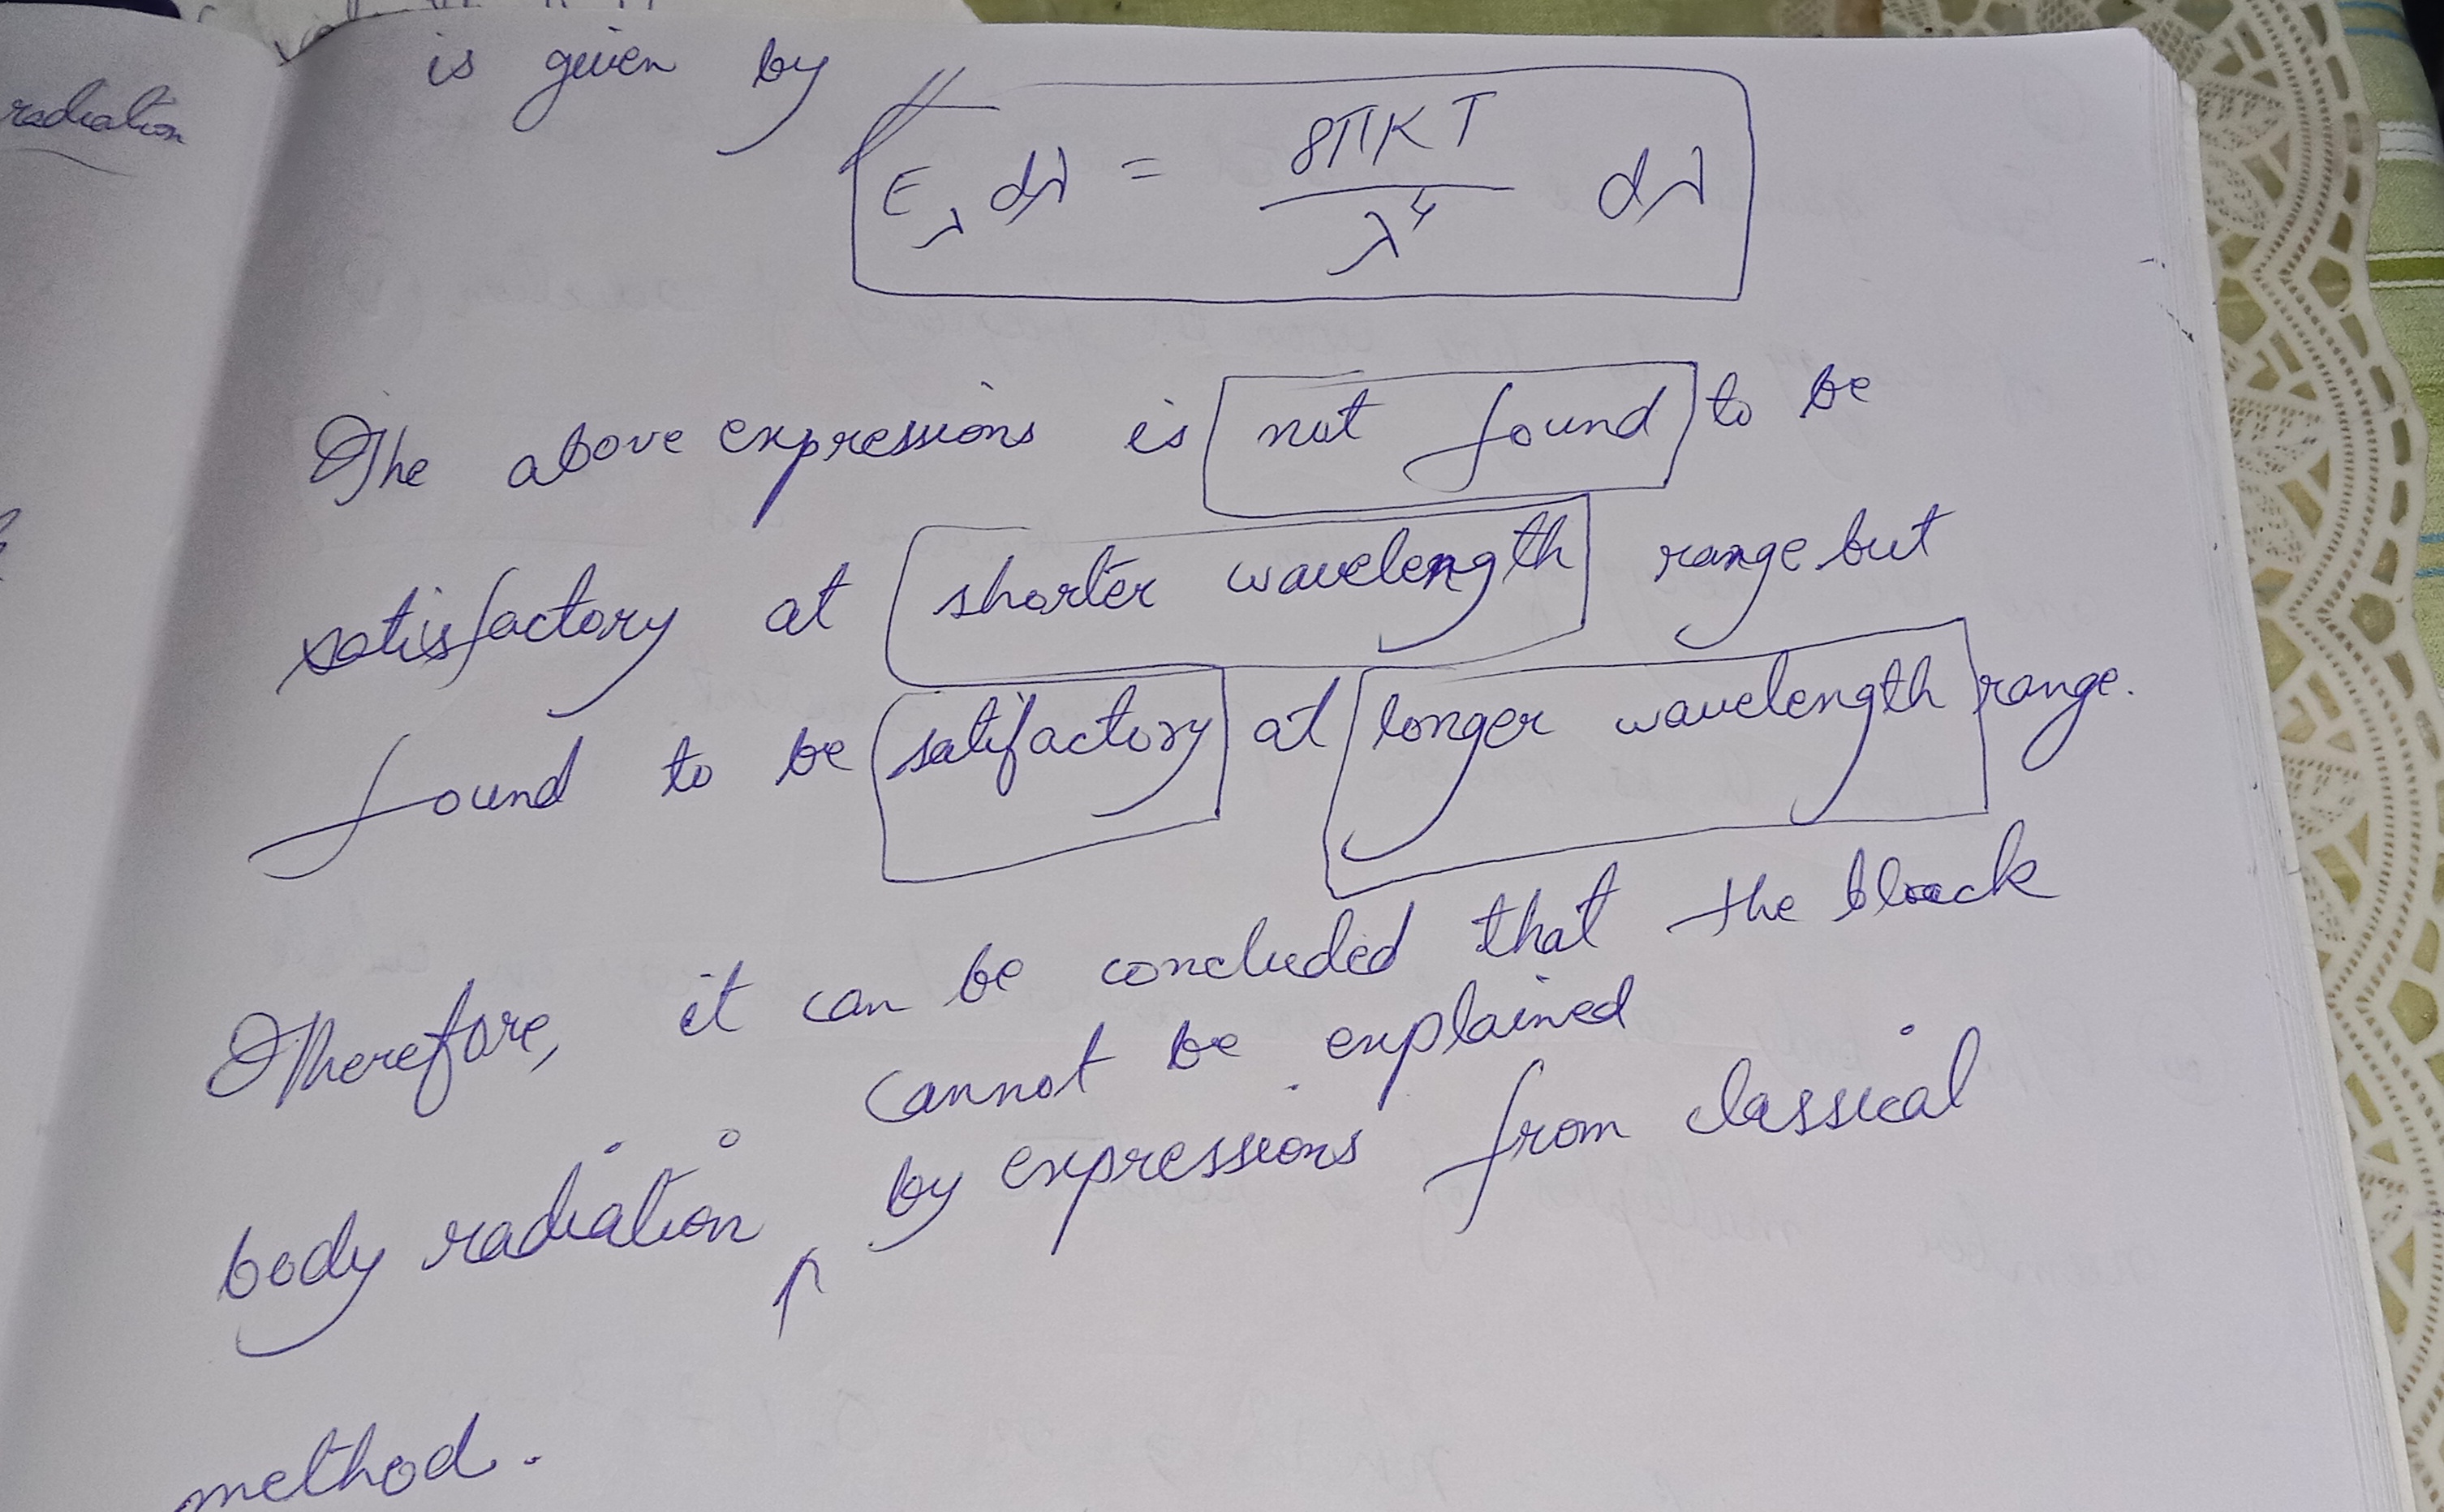 radiation
is given by
E_λ dλ = 8πKT / λ⁴ dλ
The above expressions is not found to be
satisfactory at shorter wavelength range but
found to be satifactory at longer wavelength range.
Therefore, it can be concluded that the black
body radiation cannot be explained
by expressions from classical
method.